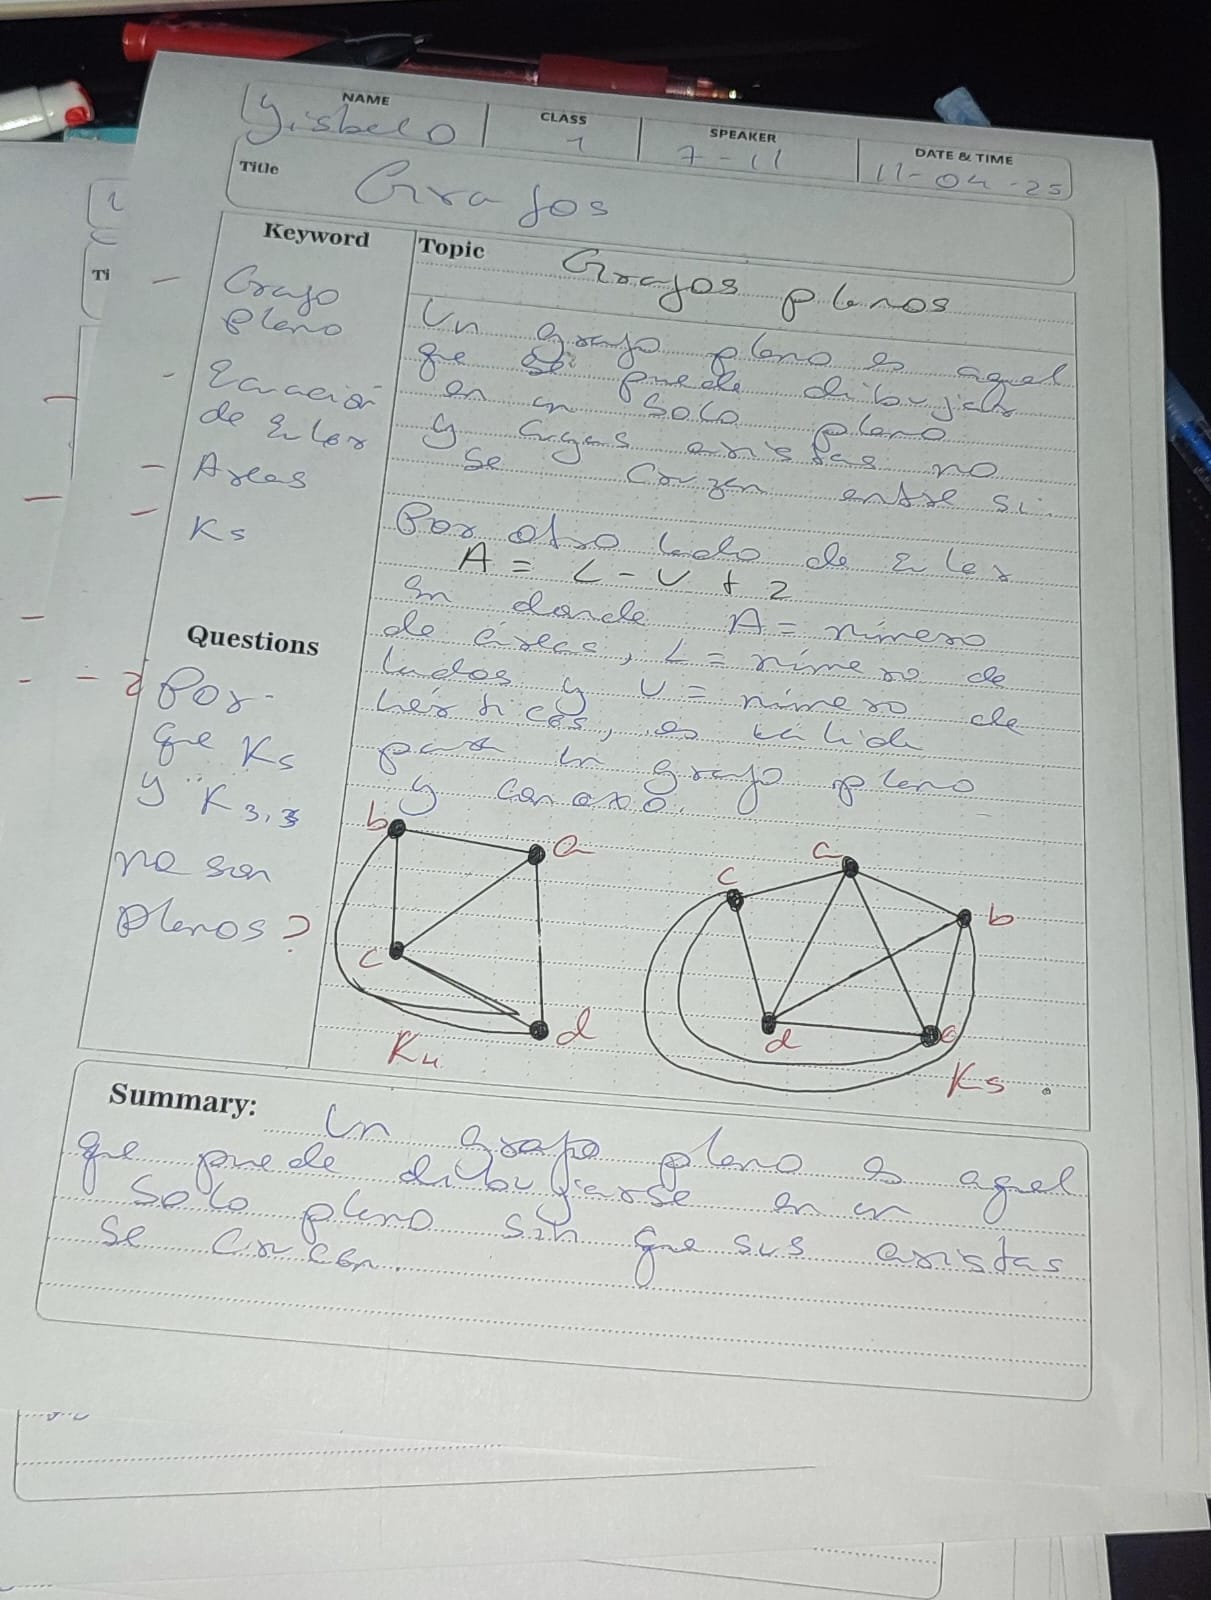 NAME
Yisbel O
CLASS
1
SPEAKER
7-11
DATE & TIME
11-04-25
Title
Grafos
Keyword
Grafo
Pleno
Ecuación
de Euler
Areas
K5
Questions
Por-
que K5
y K3,3
no son
plenos?
Topic
Grafos plenos
Un grafo pleno es aquel
que se puede dibujar
en un solo pleno
y cuyas aristas no
se cruzan entre si.
Por otro lado de Euler
A = L - V + 2
En donde A = número
de áreas, L = número de
lados y V = número de
vértices, es válida
para un grafo pleno
y conexo.
b
a
c
d
K4
c
a
b
d
e
K5
Summary:
Un grafo pleno es aquel
que puede dibujarse en un
solo pleno sin que sus aristas
se crucen.
Ti